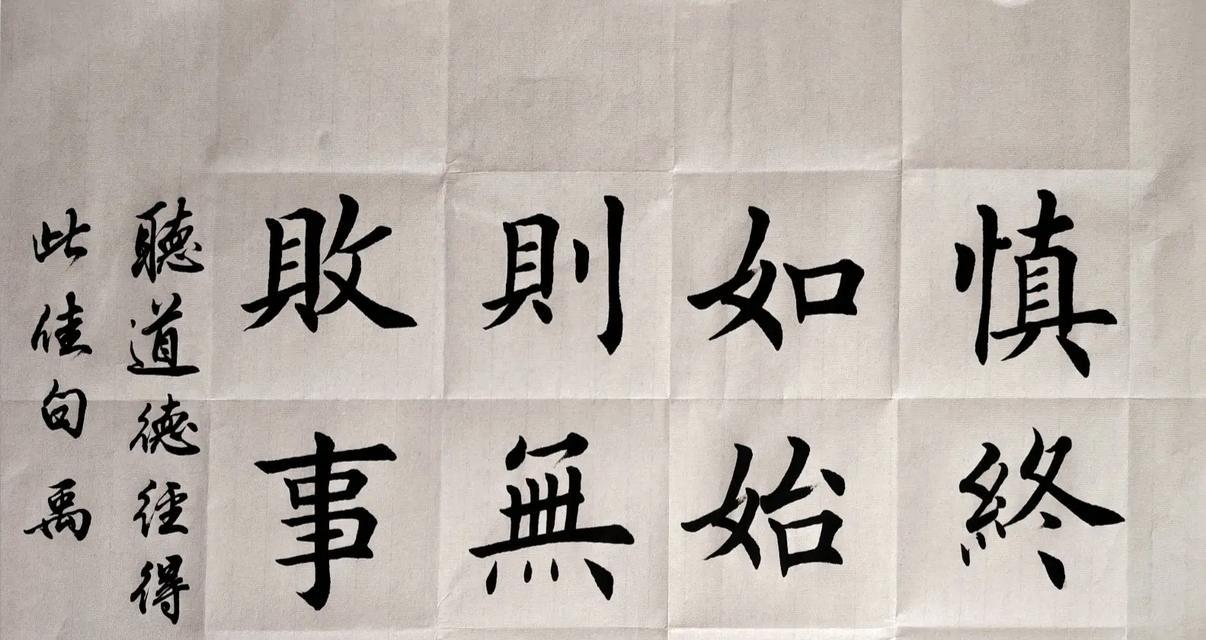 慎終
如始
則無
敗事
聽道德經得
此佳句禹